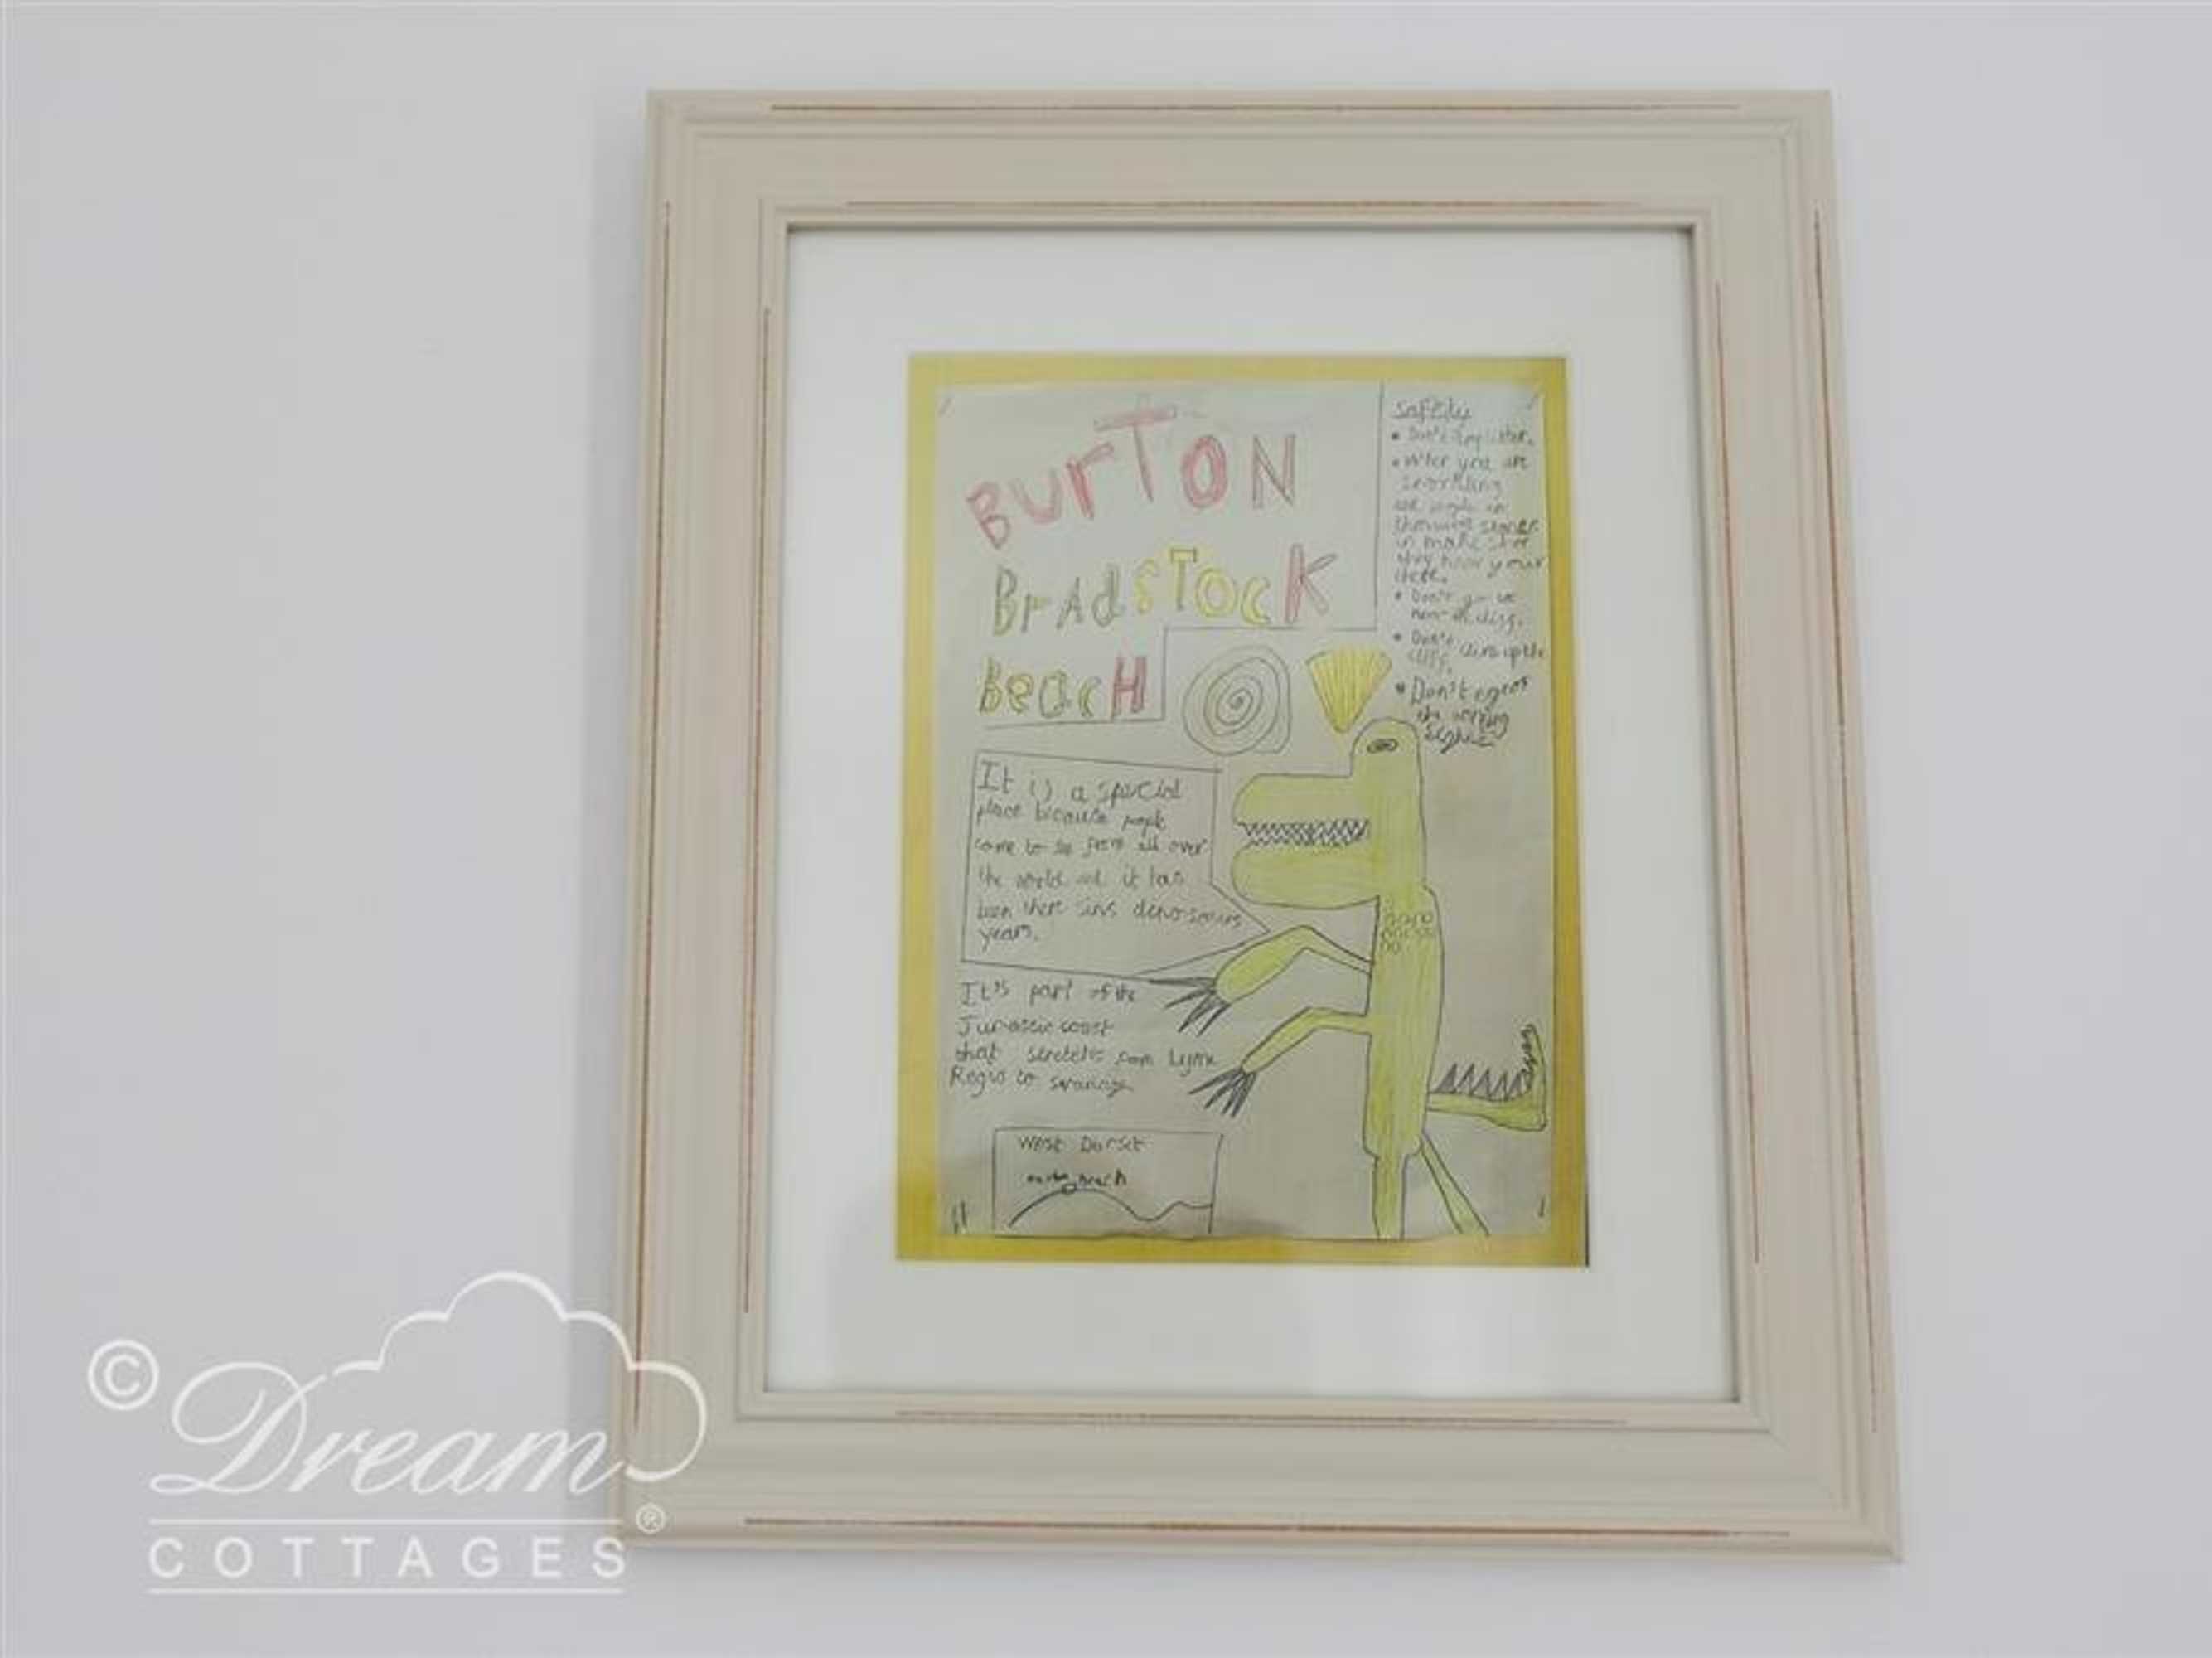 BurTON
BrAdsTOcK
BeacH
Safety
• Don't
• When you are
people in
in make shor
they know your
• Don't go
near
• Don't climb up the
cliff.
• Don't
the
It is a special
place because people
come to see from all over
the world and it has
been there sins denosaurs
years.
It's part of the
Jurassic coast
that stretches from Lyme
Regis to swanage
West Dorset
beach
©
Dream
COTTAGES ®